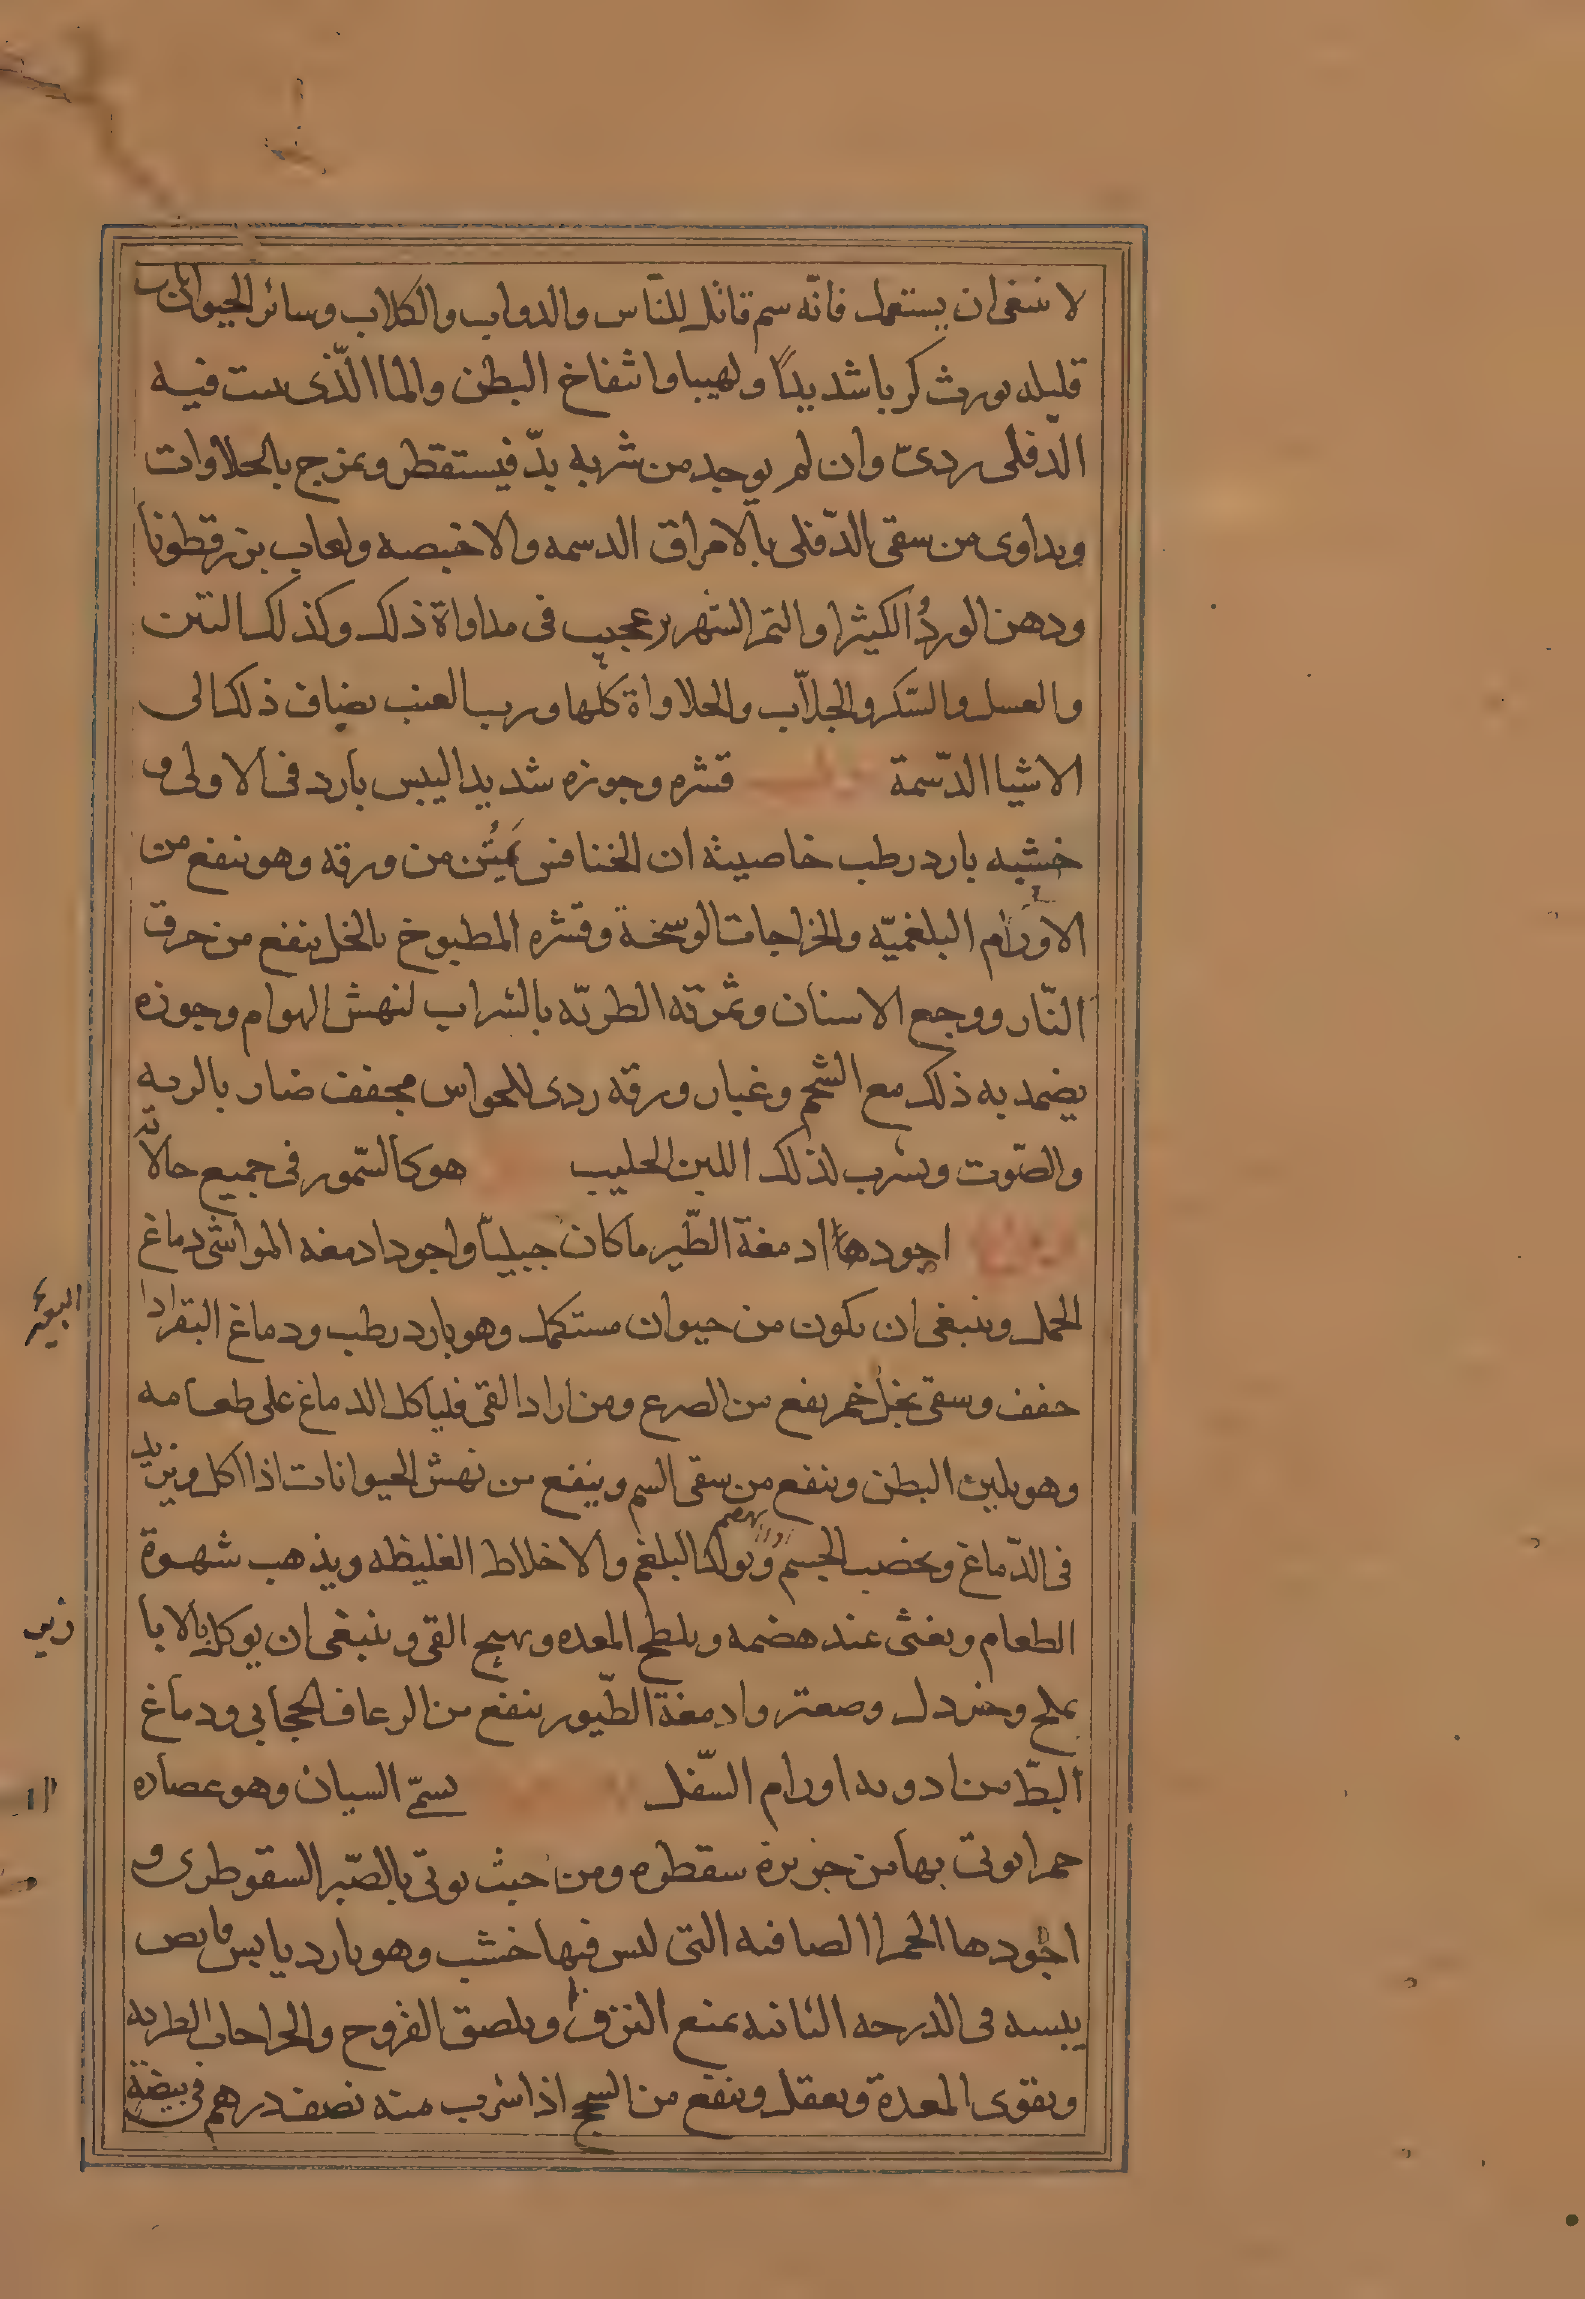 لا ينبغى ان يستعمل فانّه سم قاتل للنّاس والدواب والكلاب وسائر الحيوانات
قليله يورث كربا شديدًا ولهيبا وانتفاخ البطن والما الّذى ينبت فيه
الدّفلى ردىّ وان لم يوجد من شربه بدّ فيستقطر ويمزج بالحلاوات
ويداوى من سقى الدّفلى بالامراق الدسمه والاخبصه ولعاب بزرقطونا
ودهن الورد الكيثرا والتمر الشهريز عجيب فى مداواة ذلك وكذلك التين
والعسل والسّكر والجلاّب والحلاواة كلها ورب العنب يضاف ذلك الى
الاشيا الدّسمة قشره وجوزه شديد اليبس بارد فى الاولى و
خشبه بارد رطب خاصيته ان الخنافس يَمُتْن من ورقه وهو ينفع من
الاورام البلغميّه والخراجات الوسخة وقشره المطبوخ بالخل ينفع من حرق
النّار ووجع الاسنان وثمرته الطريّه بالشراب لنهش الهوام وجوزه
يضمد به ذلك مع الشحم وغبار ورقه ردى للحواس مجفف ضار بالريه
والصّوت ويشرب لذلك اللبن الحليب هو كالسّمور فى جميع حالاته
اجودها ادمغة الطّير ما كان جبليّا واجود ادمغه المواشى دماغ
الحمل وينبغى ان يكون من حيوان مستكمل وهو بارد رطب ودماغ البقر اذا
جفف وسقى بخل خمر نفع من الصرع ومن اراد القى فلياكل الدماغ على طعامه
وهو يلين البطن وينفع من سقى السم وينفع من نهش الحيوانات اذا اكل ويزيد
فى الدّماغ ويخصب الجسم ويولد البلغم والاخلاط الغليظه ويذهب شهوة
الطعام ويغثى عند هضمه ويلطخ المعده ويهيج القى وينبغى ان يوكل بالابا
بملح وخردل وصعتر وادمغة الطّيور ينفع من الرعاف الحجابى ودماغ
البطّ من ادويه اورام السّفل يسمّى السيان وهو عصاره
حمرا يوتى بها من جزيرة سقطره ومن حيث يوتى بالصّبر السقوطرى و
اجودها الحمرا الصافيه التى ليس فيها خشب وهو بارد يابس قابض
يبسه فى الدرجه الثانيه يمنع النزف ويلصق القروح والجراحات الطريه
ويقوى المعدة ويعقل وينفع من السحج اذا شرب منه نصف درهم فى بيضة